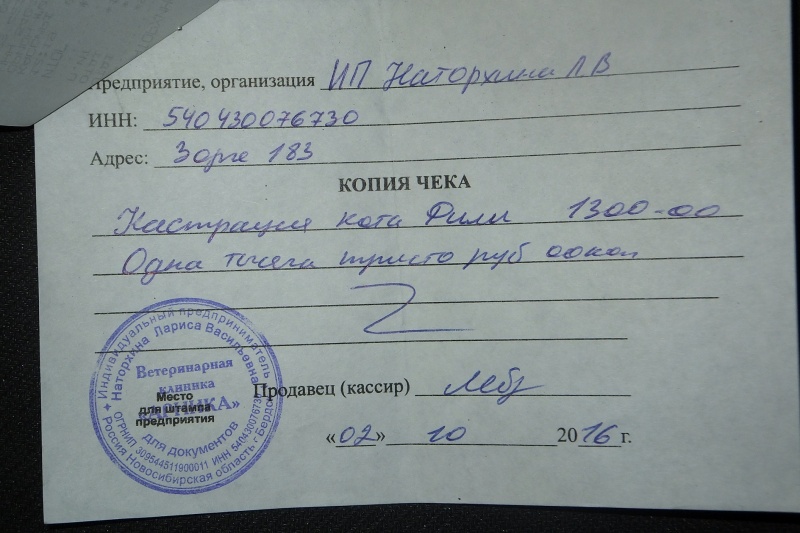 Предприятие, организация ИП Наторхина Л В
ИНН: 540430076730
Адрес: Зорге 183
КОПИЯ ЧЕКА
Кастрация кота Фили 1300-00
Одна тысяча триста руб 00 коп
Индивидуальный предприниматель
Наторхина Лариса Васильевна
Ветеринарная
клиника
Место
для штампа
предприятия
для документов
ОГРНИП 309544511900011 ИНН 540430076730
Россия Новосибирская область г Бердск
Продавец (кассир)
«02» 10 2016 г.